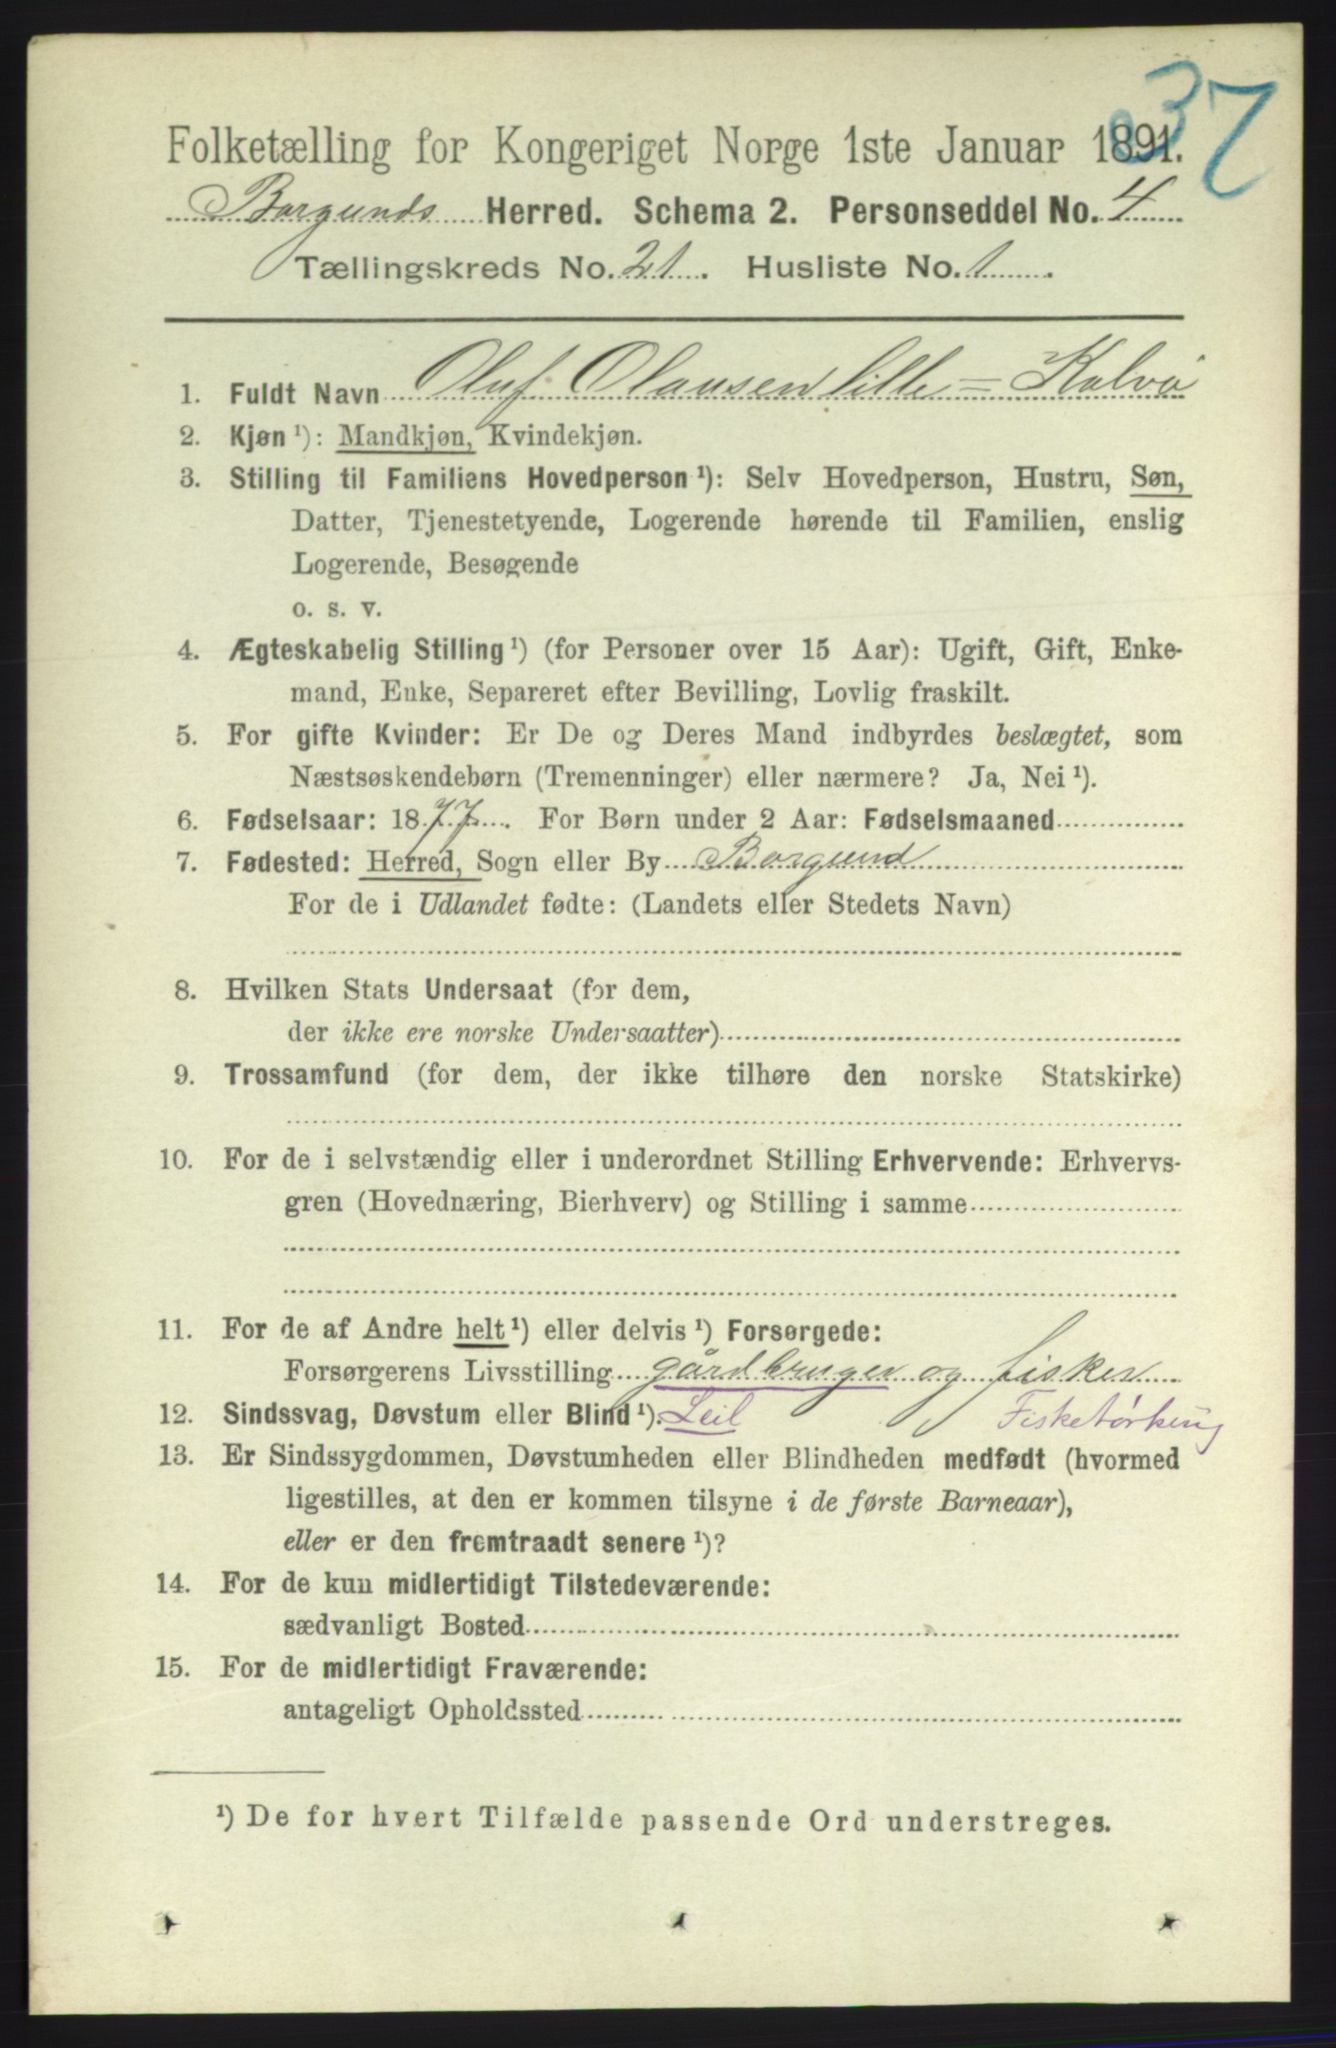 37
Folketælling for Kongeriget Norge 1ste Januar 1891.
Borgunds Herred. Schema 2. Personseddel No. 4
Tællingskreds No. 21. Husliste No. 1.
1. Fuldt Navn Oluf Olausen lille-Kalvø
2. Kjøn ¹): Mandkjøn, Kvindekjøn.
3. Stilling til Familiens Hovedperson ¹): Selv Hovedperson, Hustru, Søn,
Datter, Tjenestetyende, Logerende hørende til Familien, enslig
Logerende, Besøgende
o. s. v.
4. Ægteskabelig Stilling ¹) (for Personer over 15 Aar): Ugift, Gift, Enke-
mand, Enke, Separeret efter Bevilling, Lovlig fraskilt.
5. For gifte Kvinder: Er De og Deres Mand indbyrdes beslægtet, som
Næstsøskendebørn (Tremenninger) eller nærmere? Ja, Nei ¹).
6. Fødselsaar: 1877. For Børn under 2 Aar: Fødselsmaaned
7. Fødested: Herred, Sogn eller By Borgund
For de i Udlandet fødte: (Landets eller Stedets Navn)
8. Hvilken Stats Undersaat (for dem,
der ikke ere norske Undersaatter)
9. Trossamfund (for dem, der ikke tilhøre den norske Statskirke)
10. For de i selvstændig eller i underordnet Stilling Erhvervende: Erhvervs-
gren (Hovednæring, Bierhverv) og Stilling i samme
11. For de af Andre helt ¹) eller delvis ¹) Forsørgede:
Forsørgerens Livsstilling gårdbruger og fisker
12. Sindssvag, Døvstum eller Blind ¹). Leil Fisketørking
13. Er Sindssygdommen, Døvstumheden eller Blindheden medfødt (hvormed
ligestilles, at den er kommen tilsyne i de første Barneaar),
eller er den fremtraadt senere ¹)?
14. For de kun midlertidigt Tilstedeværende:
sædvanligt Bosted
15. For de midlertidigt Fraværende:
antageligt Opholdssted
¹) De for hvert Tilfælde passende Ord understreges.